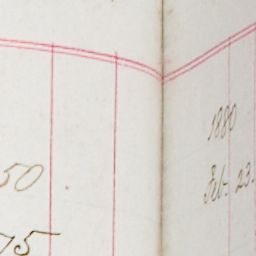 50
75
1880
Feb. 23.